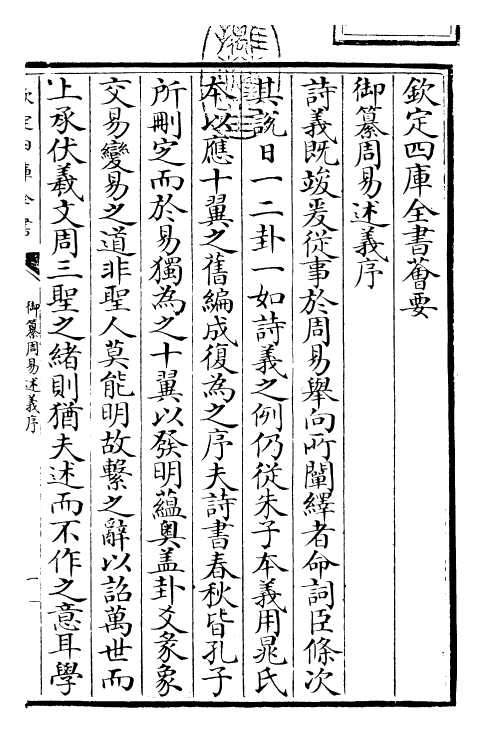 欽定四庫全書薈要
御纂周易述義序
詩義既竣爰從事於周易舉向所闡繹者命詞臣條次
其説日一二卦一如詩義之例仍從朱子本義用晁氏
本以應十翼之舊編成復為之序夫詩書春秋皆孔子
所刪定而於易獨為之十翼以發明蘊奥盖卦爻彖象
交易變易之道非聖人莫能明故繫之辭以詔萬世而
上承伏羲文周三聖之緒則猶夫述而不作之意耳學
欽定四庫全書
御纂周易述義序
一